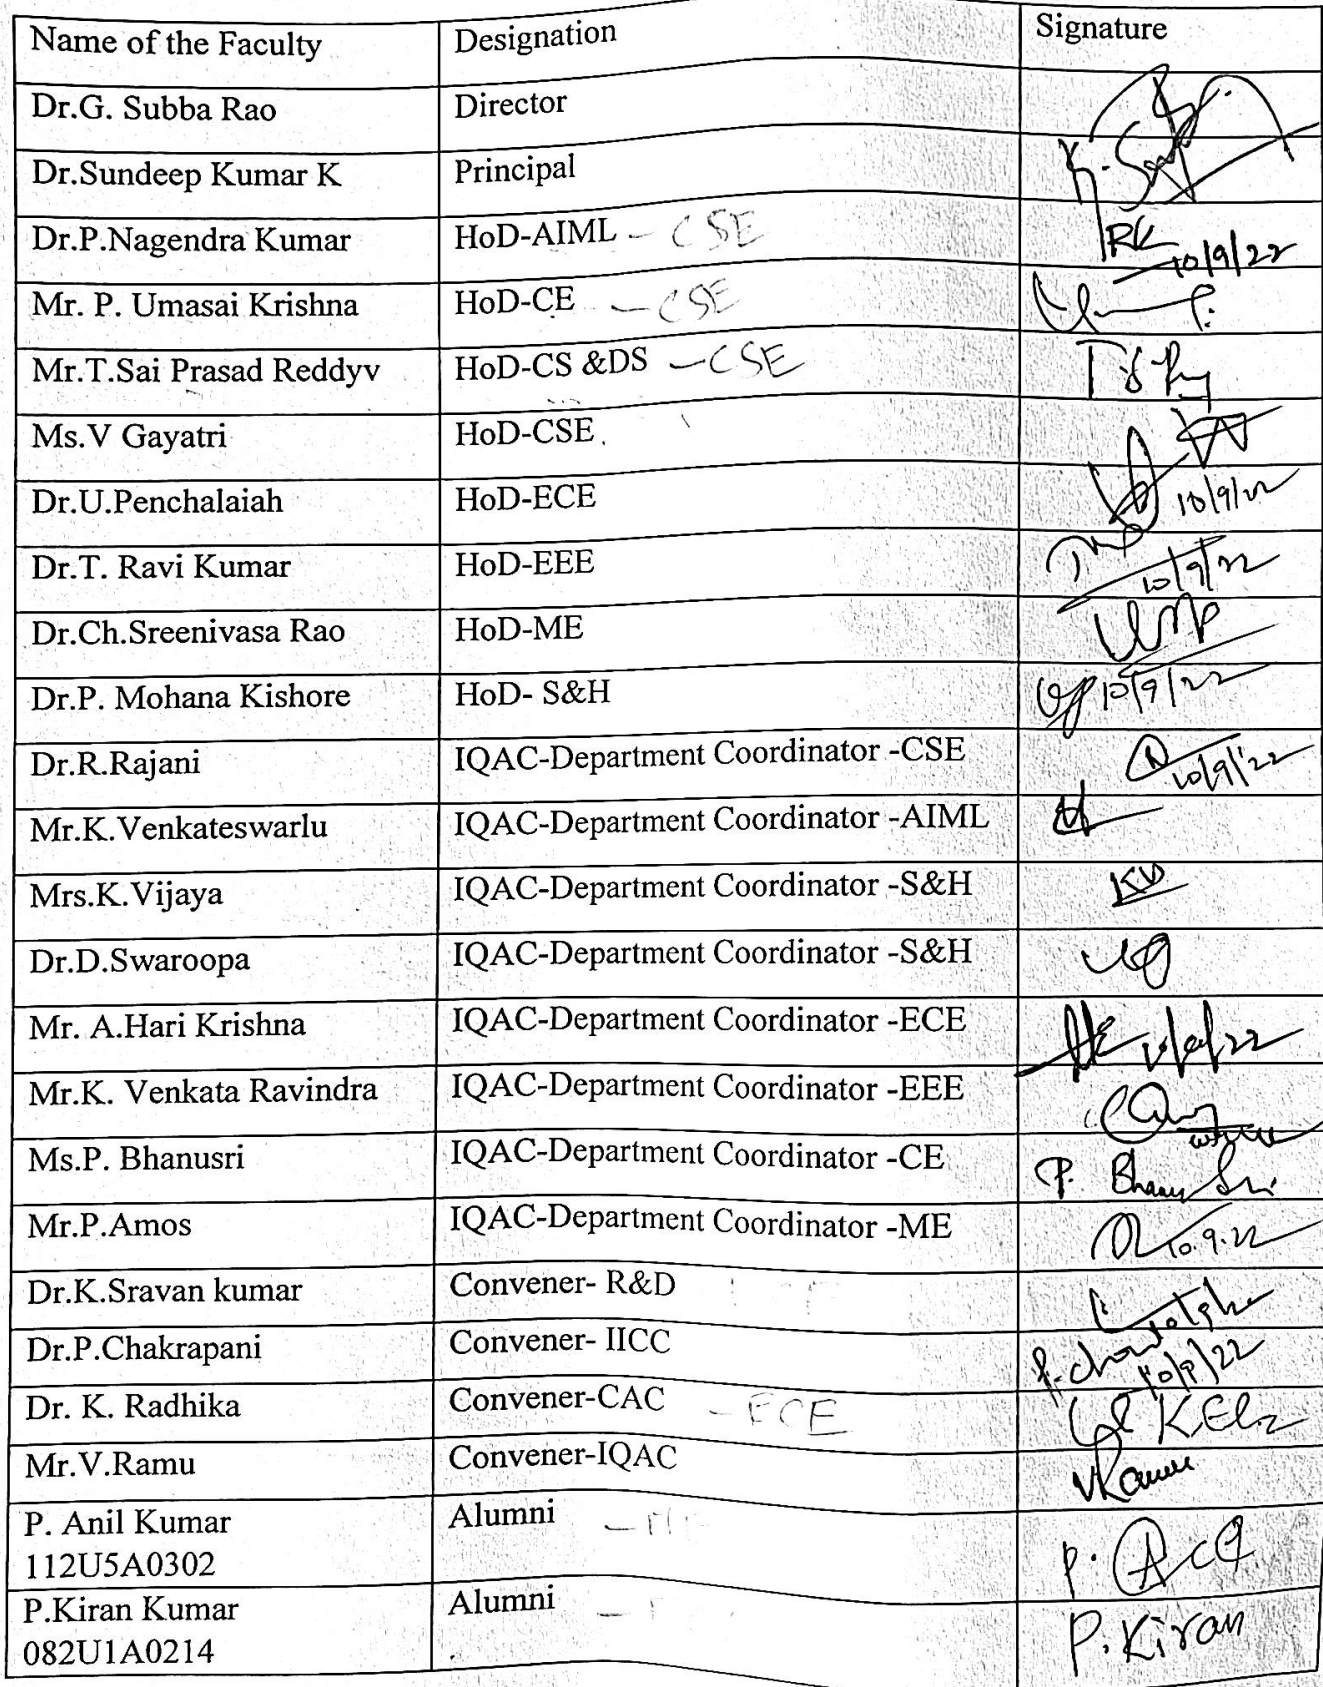 Name of the Faculty Designation Signature
Dr.G. Subba Rao Director
Dr.Sundeep Kumar K Principal
Dr.P.Nagendra Kumar HoD-AIML - CSE 10/9/22
Mr. P. Umasai Krishna HoD-CE - CSE
Mr.T.Sai Prasad Reddyv HoD-CS &DS - CSE
Ms.V Gayatri HoD-CSE
Dr.U.Penchalaiah HoD-ECE 10/9/22
Dr.T. Ravi Kumar HoD-EEE 10/9/22
Dr.Ch.Sreenivasa Rao HoD-ME
Dr.P. Mohana Kishore HoD- S&H 10/9/22
Dr.R.Rajani IQAC-Department Coordinator -CSE 10/9/22
Mr.K.Venkateswarlu IQAC-Department Coordinator -AIML
Mrs.K.Vijaya IQAC-Department Coordinator -S&H KV
Dr.D.Swaroopa IQAC-Department Coordinator -S&H
Mr. A.Hari Krishna IQAC-Department Coordinator -ECE
Mr.K. Venkata Ravindra IQAC-Department Coordinator -EEE
Ms.P. Bhanusri IQAC-Department Coordinator -CE P. Bhanu Sri
Mr.P.Amos IQAC-Department Coordinator -ME 10.9.22
Dr.K.Sravan kumar Convener- R&D
Dr.P.Chakrapani Convener- IICC 10/9/22
Dr. K. Radhika Convener-CAC - ECE
Mr.V.Ramu Convener-IQAC VRamu
P. Anil Kumar Alumni
112U5A0302
P.Kiran Kumar Alumni P.Kiran
082U1A0214